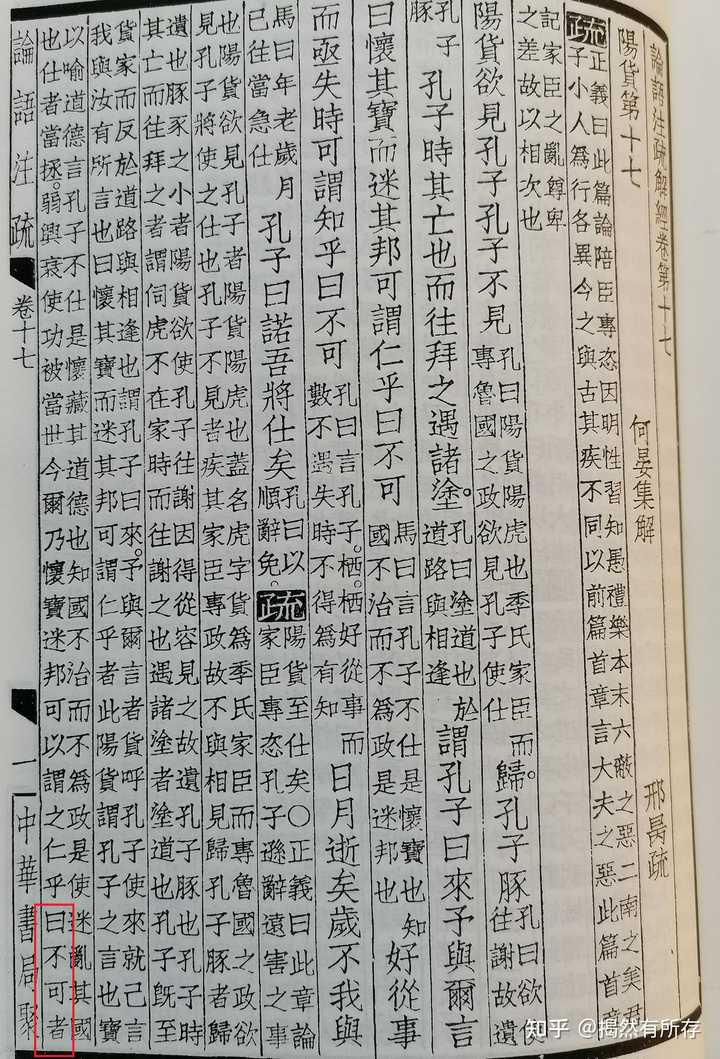 論語注疏解經卷第十七
陽貨第十七 何晏集解 邢昺疏
疏
正義曰此篇論陪臣專恣因明性習知愚禮樂本末六蔽之惡二南之美君
子小人為行各異今之與古其疾不同以前篇首章言大夫之惡此篇首章
記家臣之亂尊卑
之差故以相次也
陽貨欲見孔子孔子不見
孔曰陽貨陽虎也季氏家臣而
專魯國之政欲見孔子使仕
歸。孔子豚
孔曰欲使
往謝故遺
孔子
豚
孔子時其亡也而往拜之遇諸塗。
孔曰塗道也於
道路與相逢
謂孔子曰來予與爾言
曰懷其寶而迷其邦可謂仁乎曰不可
馬曰言孔子不仕是懷寶也知
國不治而不為政是迷邦也
好從事
而亟失時可謂知乎曰不可
孔曰言孔子。栖。栖好從事而
數不遇失時不得為有知
日月逝矣歲不我與
馬曰年老歲月
已往當急仕
孔子曰諾吾將仕矣
孔曰以
順辭免。
疏
陽貨至仕矣〇正義曰此章論
家臣專恣孔子遜辭遠害之事
也陽貨欲見孔子者陽貨陽虎也蓋名虎字貨為季氏家臣而專魯國之政欲
見孔子將使之仕也孔子不見者疾其家臣專政故不與相見歸孔子豚者歸
遺也豚豕之小者陽貨欲使孔子往謝因得從容見之故遺孔子豚也孔子時
其亡而往拜之者謂伺虎不在家時而往謝之也遇諸塗者塗道也孔子既至
貨家而反於道路與相逢也謂孔子曰來。予與爾言者貨呼孔子使來就己言
我與汝有所言也曰懷其寶而迷其邦可謂仁乎者此陽貨謂孔子之言也寶
以喻道德言孔子不仕是懷藏其道德也知國不治而不為政是使迷亂其國
也仕者當拯。弱興衰使功被當世今爾乃懷寶迷邦可以謂之仁乎曰不可者
論語注疏 卷十七 一 中華書局聚
知乎 @揭然有所存